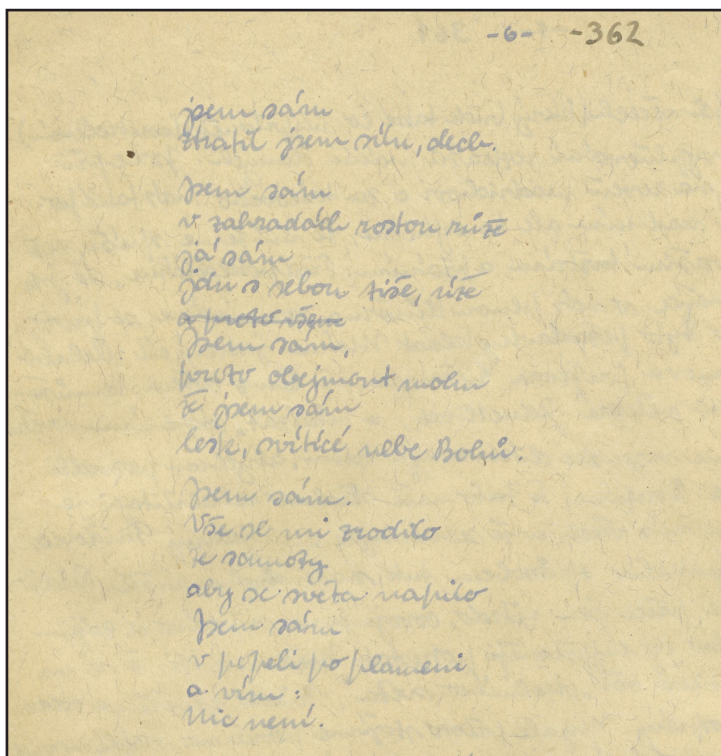 -6- -362
jsem sám
ztratil jsem sílu, dech.
Jsem sám
v zahradách rostou růže
já sám
jdu s sebou tiše, úže
a proto
Jsem sám,
proto obejmout mohu
že jsem sám
lesk, svítící nebe Bohů.
Jsem sám.
Vše se mi zrodilo
ze samoty
aby se světa napilo
Jsem sám
v popeli po plameni
a vím:
Nic není.